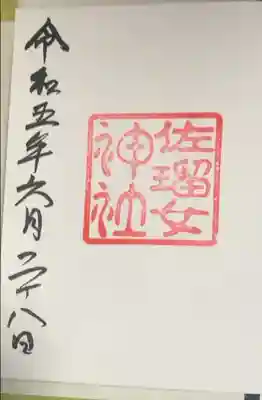 佐瑠女
神社
令和五年六月二十八日